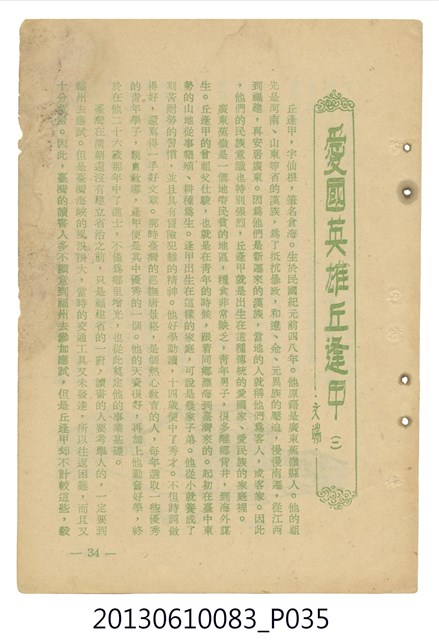 愛國英雄丘逢甲(一)
·文瑞·
丘逢甲,字仙根,筆名倉海。生於民國紀元前四八年。他原籍是廣東蕉嶺縣人。他的祖
先是河南、山東等省的漢族,爲了抵抗暴政,和遼、金、元異族的壓迫,慢慢南遷,從江西
到福建,再安居廣東。因爲他們是新遷來的漢族,當地的人就稱他們爲客人,或客家。因此
,他們的民族意識也特別强烈。丘逢甲就是出生在這種傳統的愛國家、愛民族的家庭裡。
廣東蕉嶺是一個地瘠民貧的地區,糧食非常缺乏,青年男子,很多離鄉背井,到海外謀
生。丘逢甲的曾祖父仕駿,也就是在青年的時候,跟着同鄉漂海到臺灣來的。起初在臺中東
勢的山地從事墾殖、耕種爲生。逢甲出生在這樣的家庭,可說是農家子弟。他從小就養成了
刻苦耐勞的習慣,並且具有冒險犯難的精神。他好學勤讀,十四歲便中了秀才。不但詩詞做
得好,還寫得一手好文章。那時臺灣的巡撫唐景崧,是個熱心教育的人,每年選取一些優秀
的青年學子,親自教導,逢甲便是其中優秀的一個。他的天資很好,再加上他勤奮好學,終
於在他二十六歲那年中了進士,不僅爲鄉里增光,也從此奠定他的事業基礎。
臺灣在淸朝還沒有建立省治之前,只是福建省的一府,讀書的人要考舉人的,一定要到
福州去應試。但是臺灣海峽的風浪很大,當時的交通工具又未發達,所以往返困難,而且又
十分危險。因此,臺灣的讀書人多不願意到福州去參加應試,但是丘逢甲却不計較這些,毅
— 34 —
20130610083_P035